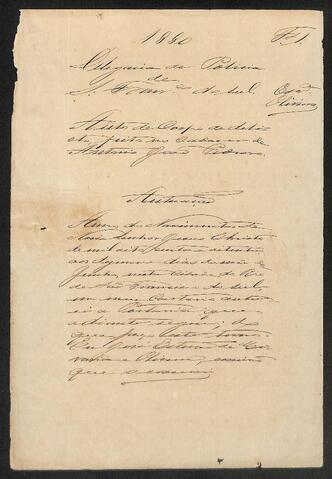 1880 Fl. 1
Delegacia de Policia
de
S. Franco. do Sul. Escrm.
Oliveira
Auto de Corpo de delic
to feito no Cadaver de
Antonio João
Autuação
Anno do Nascimento de
Nosso Senhor Jesus Christo
de mil oito centos e oitenta
aos dias do mez de
Junho, nesta cidade do Rio
de São Francisco do Sul,
em meu Cartorio autu
ei a Portaria que
adiante segue; do
que faço este termo.
Eu José
e Oliveira, escrivão
que o escrevi